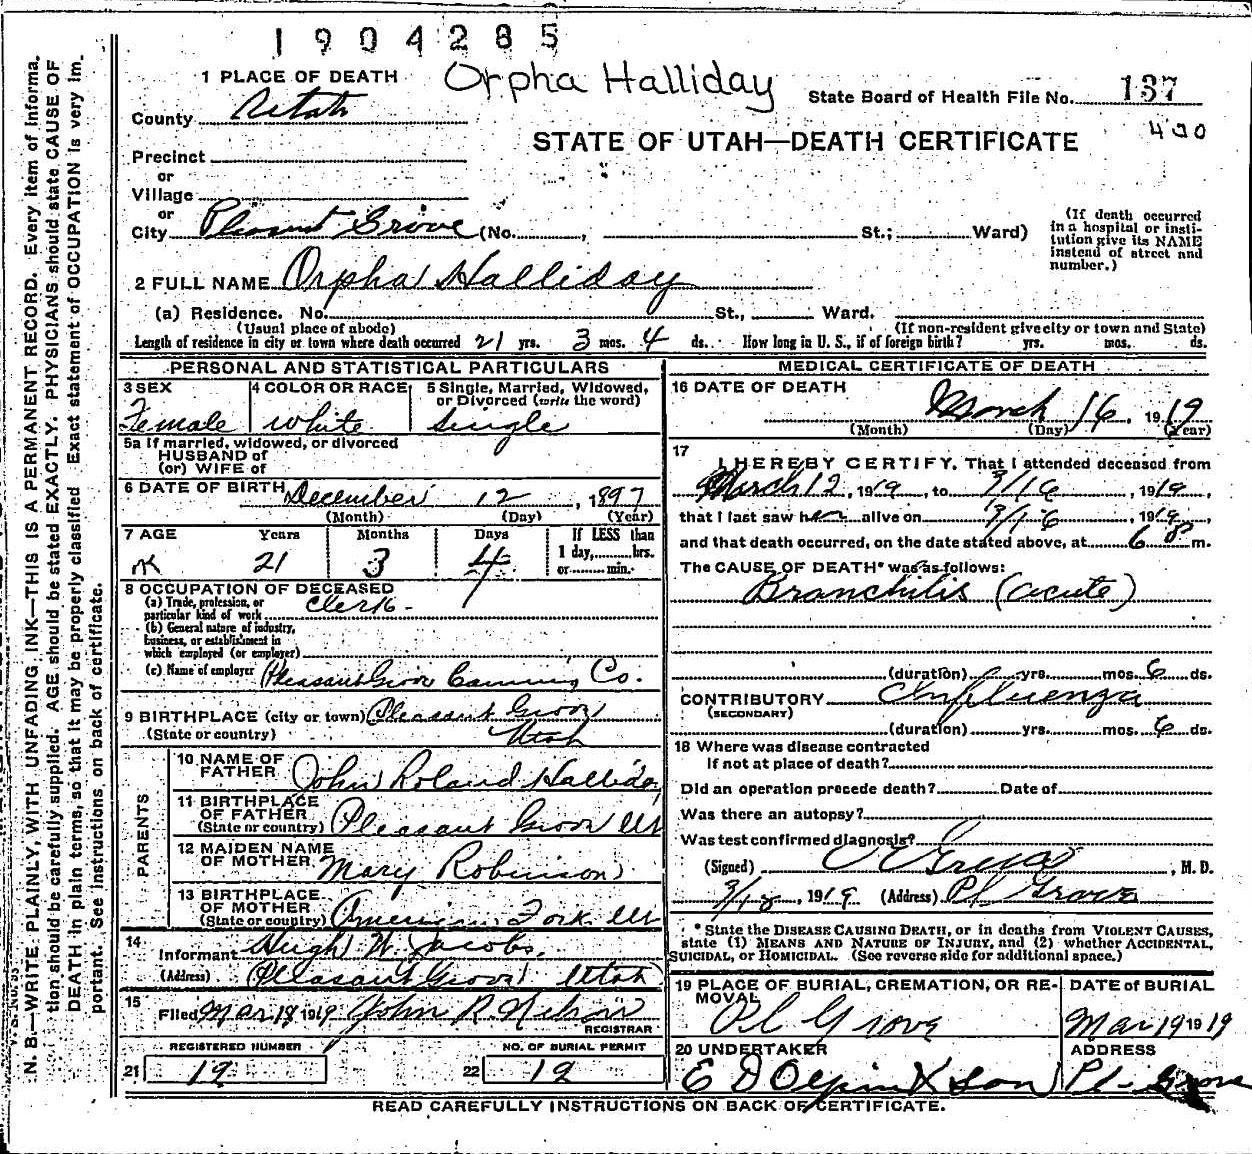 1904285
1 PLACE OF DEATH Orpha Halliday
State Board of Health File No. 137
County Utah
400
STATE OF UTAH—DEATH CERTIFICATE
Precinct
or
Village
or
City Pleasant Grove (No. , St.; Ward)
(If death occurred in a hospital or insti-
tution give its NAME
instead of street and
number.)
2 FULL NAME Orpha Halliday
(a) Residence. No. St., Ward.
(Usual place of abode) (If non-resident give city or town and State)
Length of residence in city or town where death occurred 21 yrs. 3 mos. 4 ds. How long in U. S., if of foreign birth? yrs. mos. ds.
PERSONAL AND STATISTICAL PARTICULARS
3 SEX 4 COLOR OR RACE 5 Single, Married, Widowed,
or Divorced (write the word)
Female white Single
5a If married, widowed, or divorced
HUSBAND of
(or) WIFE of
6 DATE OF BIRTH December 12, 1897
(Month) (Day) (Year)
7 AGE Years Months Days If LESS than
1 day, hrs.
or min.
21 3 4
8 OCCUPATION OF DECEASED
(a) Trade, profession, or
particular kind of work Clerk-
(b) General nature of industry,
business, or establishment in
which employed (or employer)
(c) Name of employer Pleasant Grove Canning Co.
9 BIRTHPLACE (city or town) Pleasant Grove
(State or country) Utah
PARENTS
10 NAME OF
FATHER John Roland Halliday
11 BIRTHPLACE
OF FATHER
(State or country) Pleasant Grove Ut
12 MAIDEN NAME
OF MOTHER Mary Robinson
13 BIRTHPLACE
OF MOTHER
(State or country) American Fork Ut
14
Informant Hugh W. Jacobs.
(Address) Pleasant Grove Utah
15
Filed Mar 18 1919 John R. Nelson
REGISTRAR
REGISTERED NUMBER NO. OF BURIAL PERMIT
21 12 22 12
MEDICAL CERTIFICATE OF DEATH
16 DATE OF DEATH
March 16, 1919
(Month) (Day) (Year)
17
I HEREBY CERTIFY, That I attended deceased from
March 12, 1919, to 3/16, 1919,
that I last saw her alive on 3/16, 1919,
and that death occurred, on the date stated above, at 6 m.
The CAUSE OF DEATH* was as follows:
Bronchitis (acute)
(duration) yrs. mos. 6 ds.
CONTRIBUTORY Influenza
(SECONDARY)
(duration) yrs. mos. 6 ds.
18 Where was disease contracted
If not at place of death?
Did an operation precede death? Date of
Was there an autopsy?
Was test confirmed diagnosis?
(Signed) , M. D.
3/18, 1919 (Address) Pl Grove
* State the DISEASE CAUSING DEATH, or in deaths from VIOLENT CAUSES,
state (1) MEANS AND NATURE OF INJURY, and (2) whether ACCIDENTAL,
SUICIDAL, or HOMICIDAL. (See reverse side for additional space.)
19 PLACE OF BURIAL, CREMATION, OR RE-
MOVAL
DATE of BURIAL
Pl Grove Mar 19 1919
20 UNDERTAKER ADDRESS
E D Olpin & Son Pl- Grove
READ CAREFULLY INSTRUCTIONS ON BACK OF CERTIFICATE.
N. B.—WRITE PLAINLY, WITH UNFADING INK—THIS IS A PERMANENT RECORD. Every item of informa-
tion should be carefully supplied. AGE should be stated EXACTLY. PHYSICIANS should state CAUSE OF
DEATH in plain terms, so that it may be properly classified. Exact statement of OCCUPATION is very im-
portant. See instructions on back of certificate.